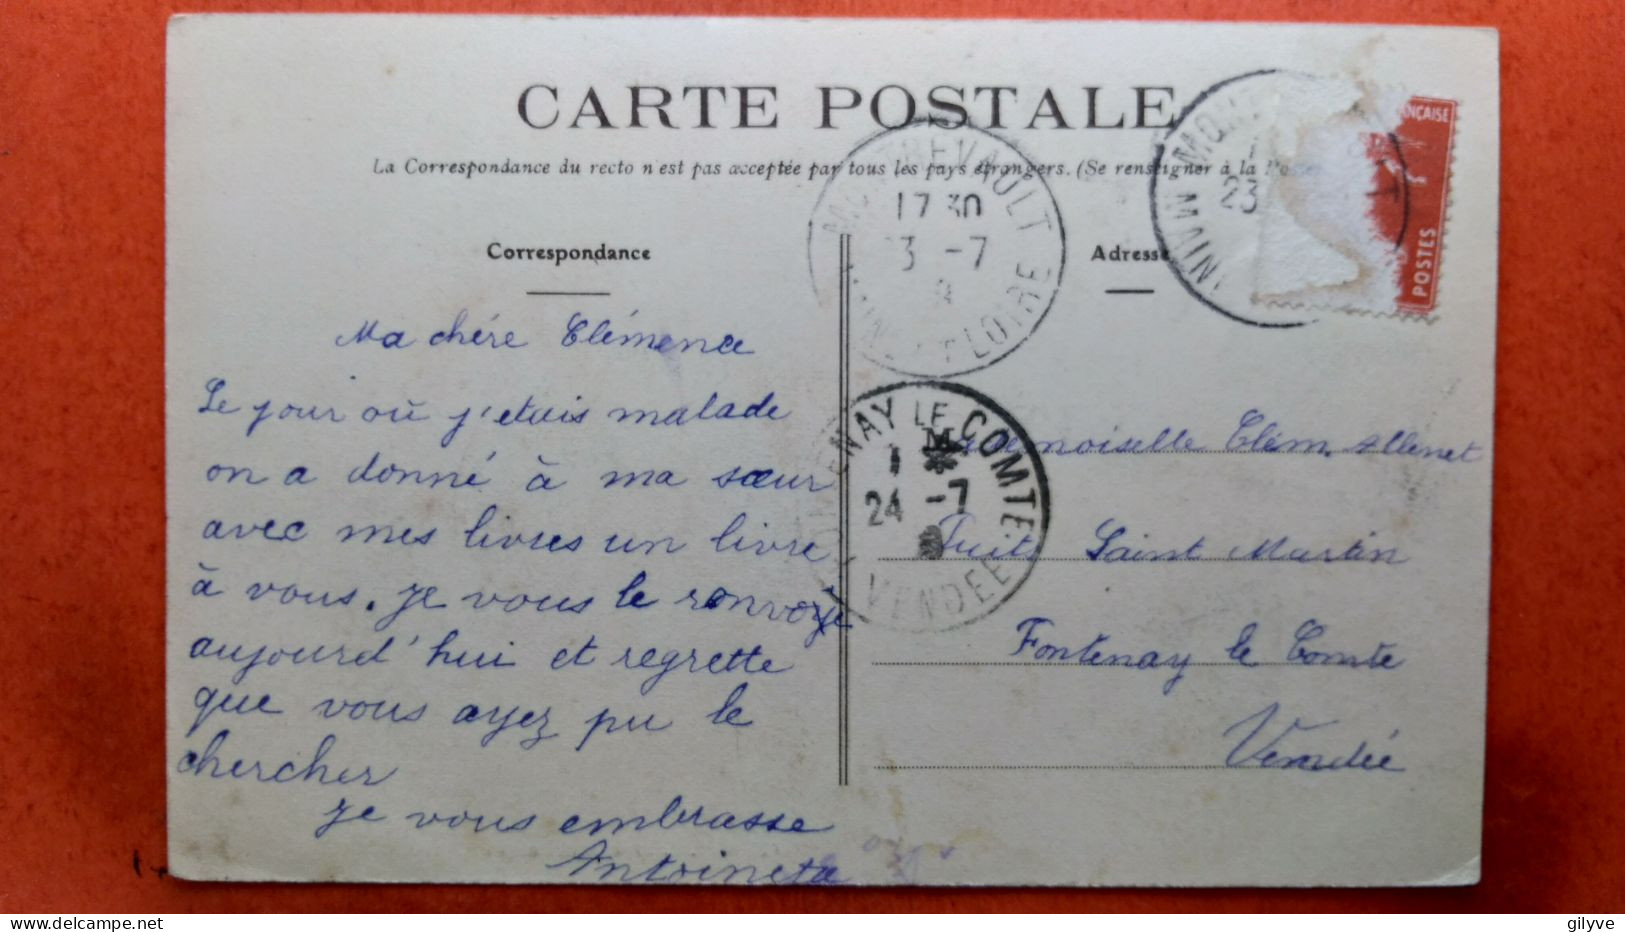 CARTE POSTALE
La Correspondance du recto n'est pas acceptée par tous les pays étrangers. (Se renseigner à la Poste
Correspondance
Ma chére Clémence
Le jour où j'etais malade
on a donné à ma sœur
avec mes livres un livre
à vous. Je vous le renvoye
aujourd'hui et regrette
que vous ayez pu le
chercher
Je vous embrasse
Antoinette
MONTREVAULT
17 30
23 -7
LOIRE
FONTENAY LE COMTE
24 -7
VENDEE
23
ANÇAISE
POSTES
Adresse
Mademoiselle Clém.
Puits Saint Martin
Fontenay le Comte
Vendée
gilyve